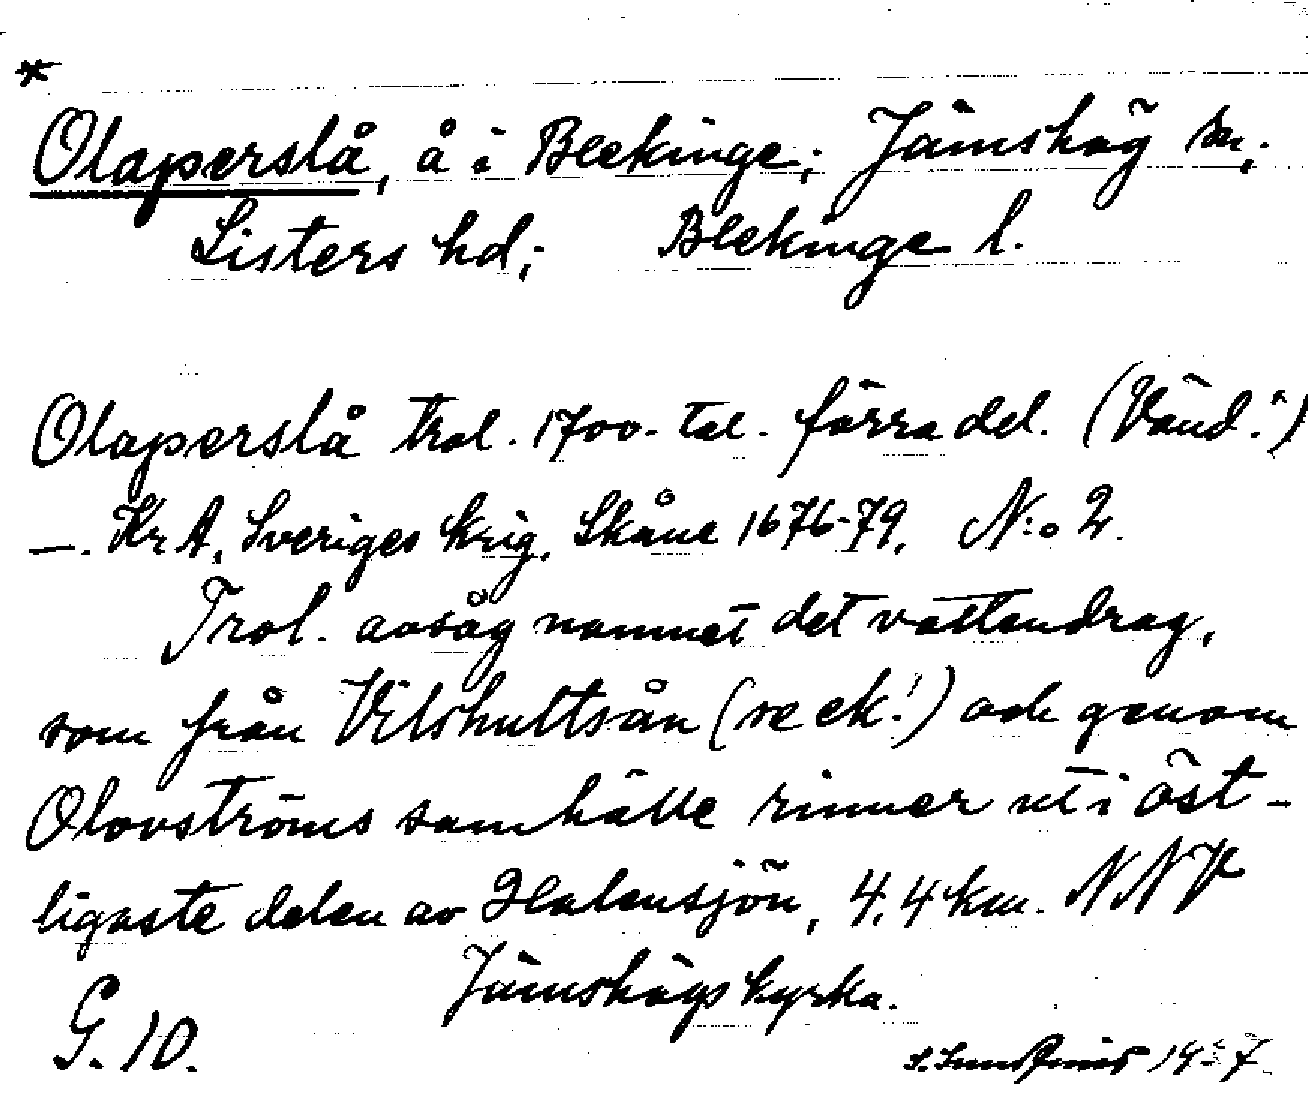 *
Olaperslå, å i Blekinge; Jämshög sn.;
Listers hd; Blekinge l.
Olaperslå trol. 1700-tal. förra del. (Vänd!)
—. Kr A, Sveriges krig, Skåne 1676-79, N:o 2.
Trol. avsåg namnet det vattendrag,
som från Vilshultsån (se ek!) och genom
Olovströms samhälle rinner ut i öst-
ligaste delen av Halensjön, 4,4 km. NNV
Jämshögs kyrka.
G. 10.